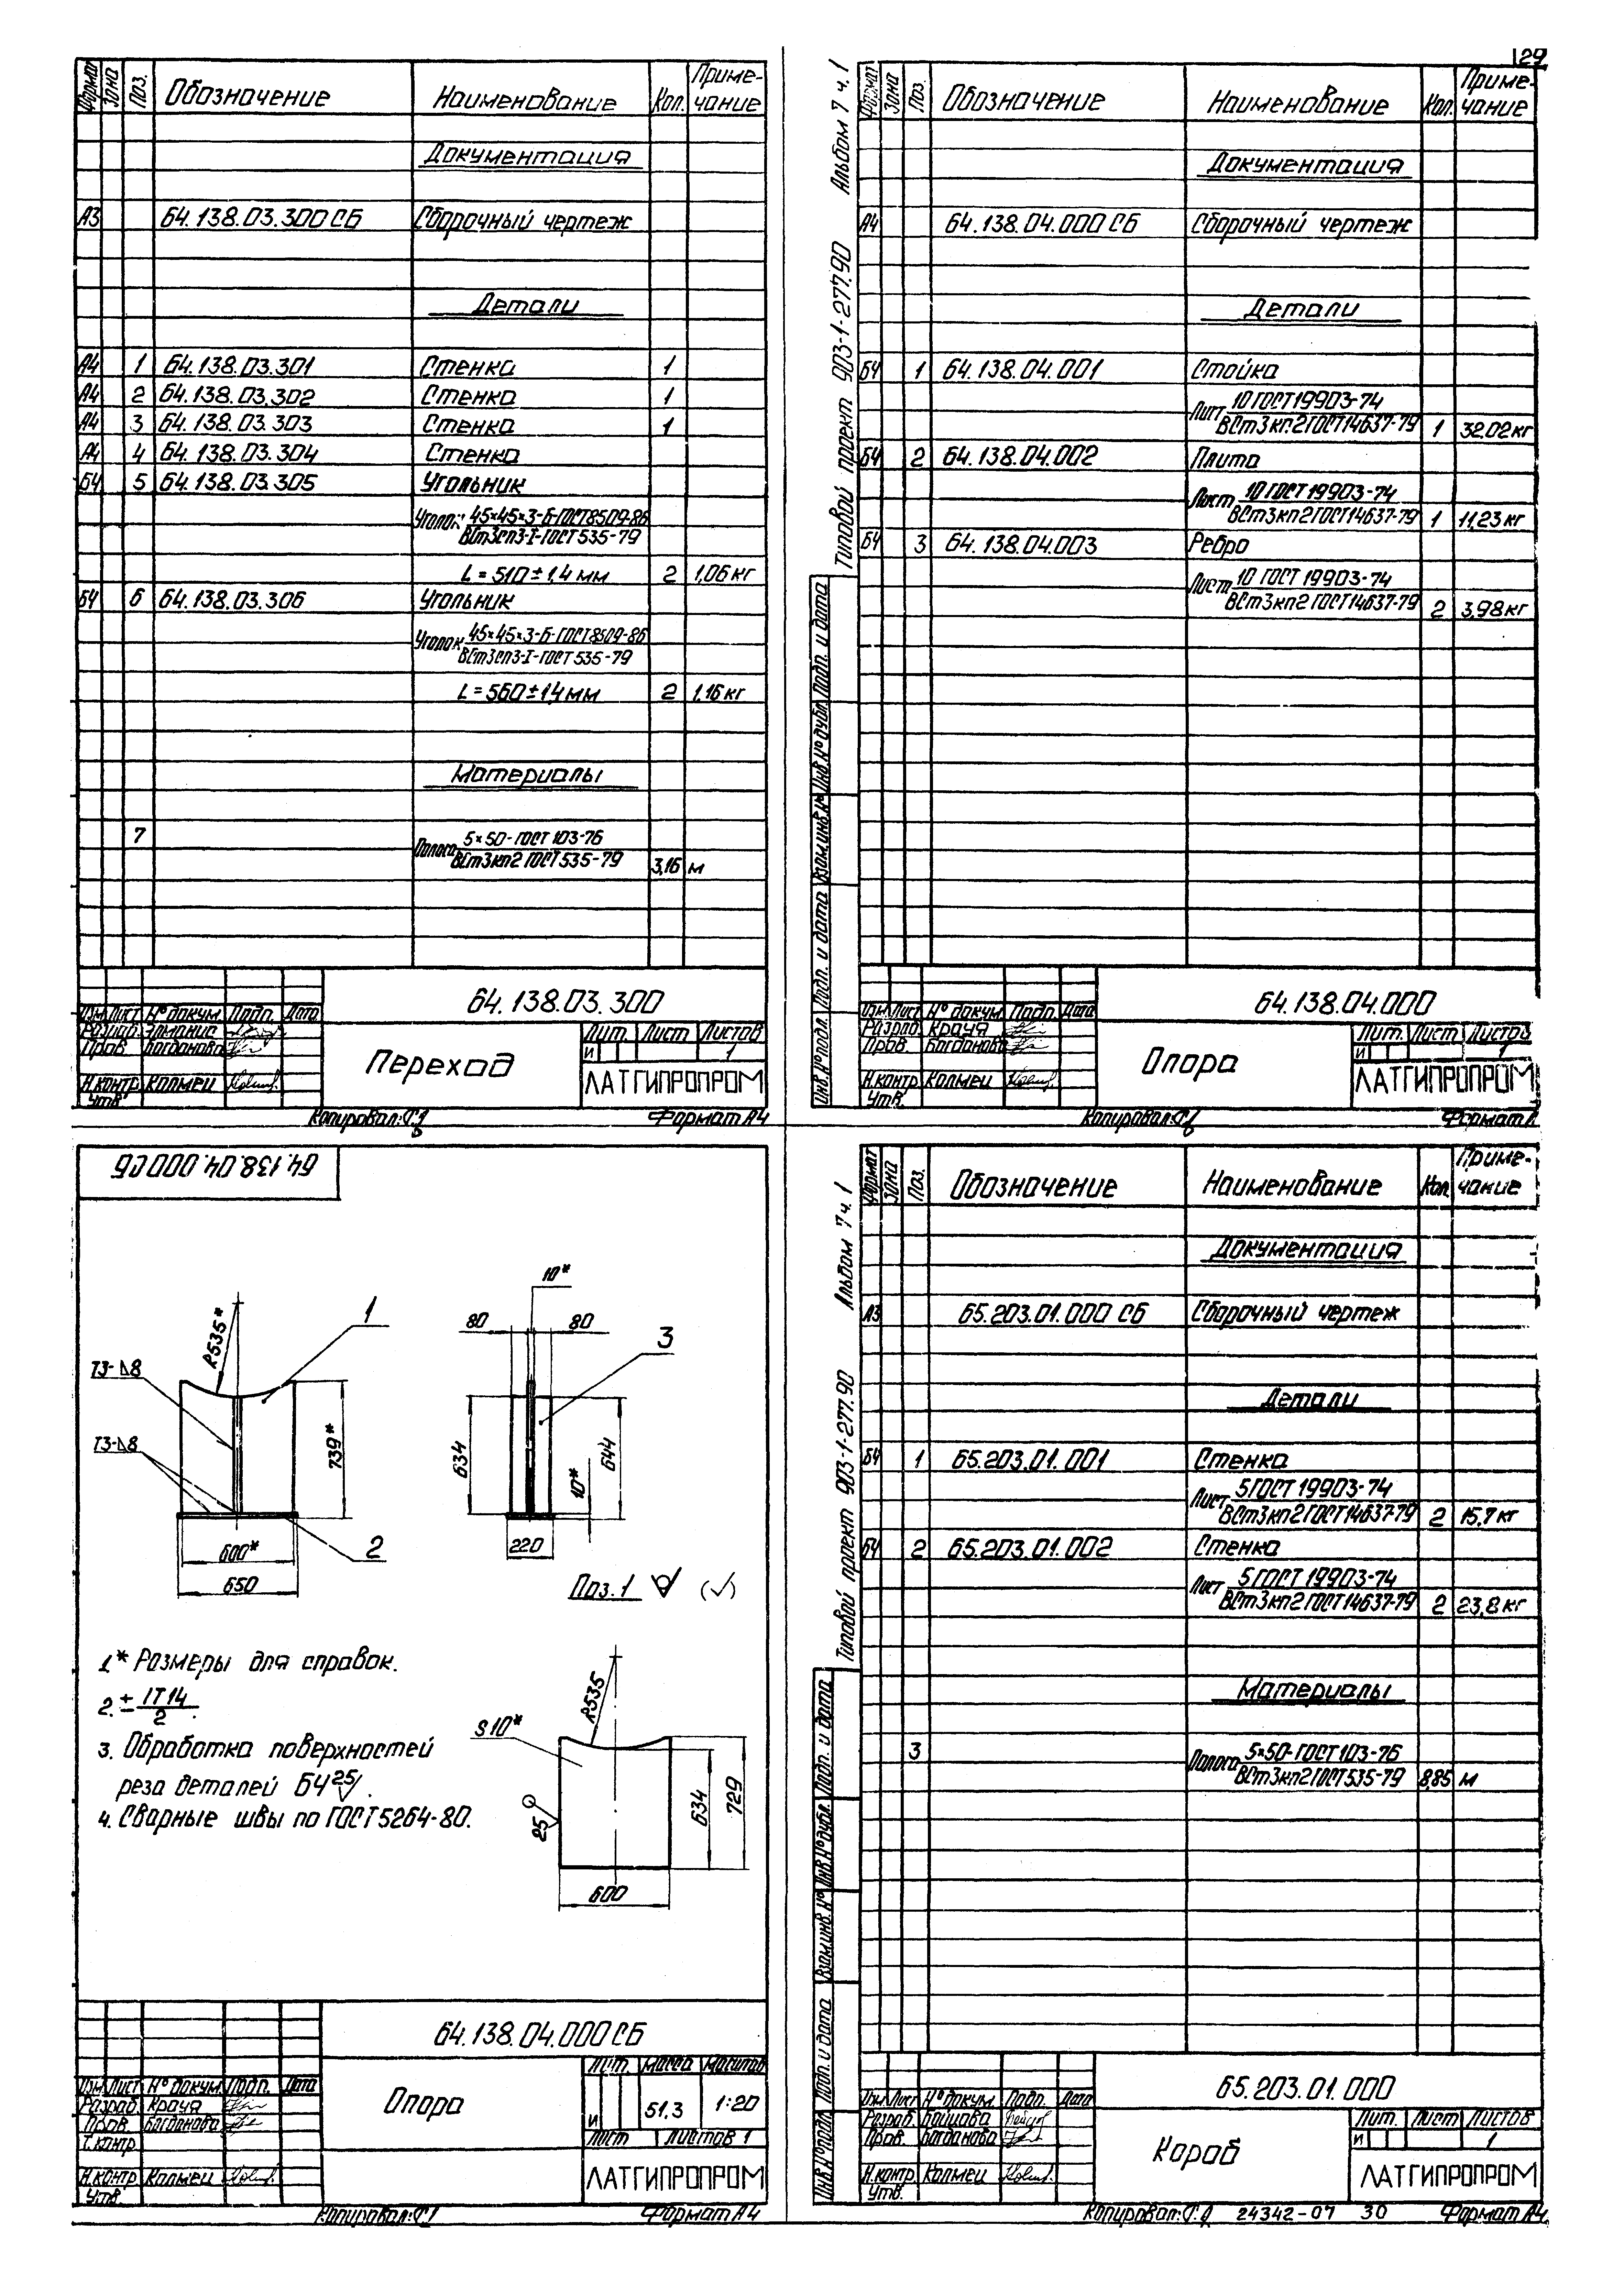 129
Формат Зона Поз. Обозначение Наименование Кол. Примечание
Документация
А3 64.138.03.300 СБ Сборочный чертеж
Детали
А4 1 64.138.03.301 Стенка 1
А4 2 64.138.03.302 Стенка 1
А4 3 64.138.03.303 Стенка 1
А4 4 64.138.03.304 Стенка
БЧ 5 64.138.03.305 Угольник
Уголок 45×45×3-Б-ГОСТ8509-86
ВСт3сп3-I-ГОСТ 535-79
L = 510 ± 1,4 мм 2 1,06 кг
БЧ 6 64.138.03.306 Угольник
Уголок 45×45×3-Б-ГОСТ8509-86
ВСт3сп3-I-ГОСТ 535-79
L = 560 ± 1,4 мм 2 1,16 кг
Материалы
7
Полоса 5×50-ГОСТ 103-76
ВСт3кп2 ГОСТ 535-79 3,16 м
64.138.03.300
Изм. Лист № докум. Подп. Дата
Разраб.
Пров. Богданова
Н.контр. Колмец
Утв.
Переход
Лит. Лист Листов
И 1
ЛАТГИПРОПРОМ
Копировал: Формат А4
Типовой проект 903-1-277.90 Альбом 7 ч. 1
Формат Зона Поз. Обозначение Наименование Кол. Примечание
Документация
А4 64.138.04.000 СБ Сборочный чертеж
Детали
БЧ 1 64.138.04.001 Стойка
Лист 10 ГОСТ 19903-74
ВСт3кп2 ГОСТ14637-79 1 32.02 кг
БЧ 2 64.138.04.002 Плита
Лист 10 ГОСТ 19903-74
ВСт3кп2 ГОСТ14637-79 1 11,23 кг
БЧ 3 64.138.04.003 Ребро
Лист 10 ГОСТ 19903-74
ВСт3кп2 ГОСТ14637-79 2 3,98 кг
Инв.№ подл. Подп. и дата Взам.инв.№ Инв.№ дубл. Подп. и дата
64.138.04.000
Изм. Лист № докум. Подп. Дата
Разраб. Крауя
Пров. Богданова
Н.контр. Колмец
Утв.
Опора
Лит. Лист Листов
И 1
ЛАТГИПРОПРОМ
Копировал: Формат
64.138.04.000 СБ
R535*
1
Т3-⊿8
Т3-⊿8
739*
600*
650
2
10*
80 80
3
634
644
10*
220
Поз. 1 (√)
1* Размеры для справок.
2. ± IT14
2
3. Обработка поверхностей
реза деталей БЧ 25√.
4. Сварные швы по ГОСТ 5264-80.
S10*
R535
25
634
729
600
64.138.04.000 СБ
Изм. Лист № докум. Подп. Дата
Разраб. Крауя
Пров. Богданова
Т.контр.
Н.контр. Колмец
Утв.
Опора
Лит. Масса Масштаб
И 51,3 1:20
Лист Листов 1
ЛАТГИПРОПРОМ
Копировал: Формат А4
Типовой проект 903-1-277.90 Альбом 7 ч. 1
Формат Зона Поз. Обозначение Наименование Кол. Примечание
Документация
А3 65.203.01.000 СБ Сборочный чертеж
Детали
БЧ 1 65.203.01.001 Стенка
Лист 5 ГОСТ 19903-74
ВСт3кп2 ГОСТ14637-79 2 15,7 кг
БЧ 2 65.203.01.002 Стенка
Лист 5 ГОСТ 19903-74
ВСт3кп2 ГОСТ14637-79 2 23,8 кг
Материалы
3
Полоса 5×50-ГОСТ 103-76
ВСт3кп2 ГОСТ 535-79 8,85 м
Инв.№ подл. Подп. и дата Взам.инв.№ Инв.№ дубл. Подп. и дата
65.203.01.000
Изм. Лист № докум. Подп. Дата
Разраб. Бойцова
Пров. Богданова
Н.контр. Колмец
Утв.
Короб
Лит. Лист Листов
И 1
ЛАТГИПРОПРОМ
Копировал: 24342-07 30 Формат А4